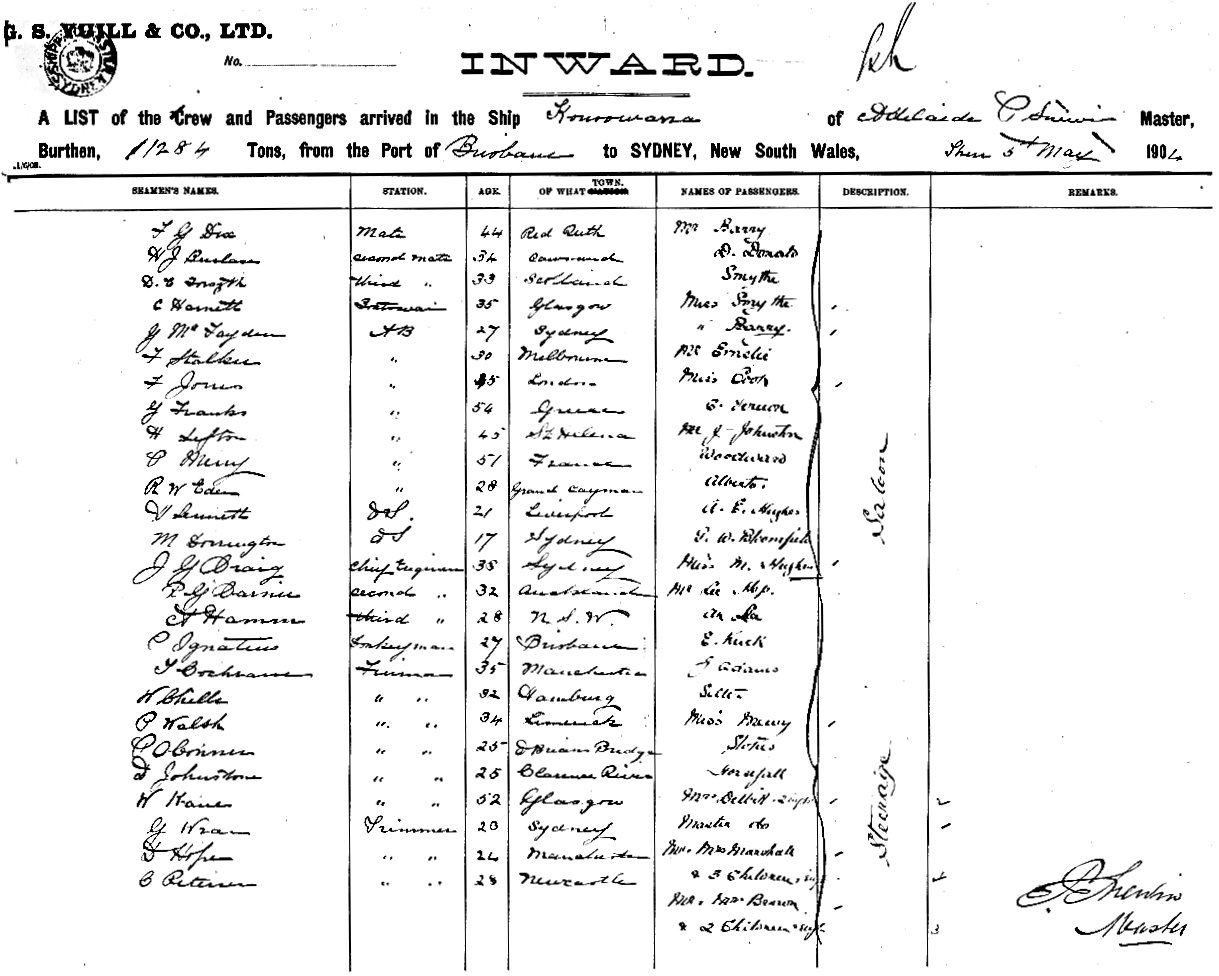 G. S. YUILL & CO., LTD.
No.
INWARD.
A LIST of the Crew and Passengers arrived in the Ship Konoowarra of Adelaide Master,
Burthen, 1284 Tons, from the Port of Brisbane to SYDNEY, New South Wales, 5th May 1904
SEAMEN'S NAMES. STATION. AGE. OF WHAT TOWN. NAMES OF PASSENGERS. DESCRIPTION. REMARKS.
F G Dix Mate 44 Red Ruth Mr Barry
H J second mate 34 Cawsand D. Donato
D. C Forsyth third " 33 Scotland Smythe
C Hamett 35 Glasgow Miss Smythe
G McFayden AB 27 Sydney " Barry.
F Stalker " 30 Melbourne Mr Emelie
F Jones " London Miss Cook
G Franks " 54 Greece C. Vernon
H Lefton " 45 St Helena Mr J Johnston
P Merry " 51 France Woodward
R W Eden " 28 Grand Cayman Alberto.
V Sennett OS. 21 Liverpool A. E. Hughes
M Dorrington OS 17 Sydney W. Bloomfield
Saloon
J G Craig chief Engineer 38 Sydney Miss M. Hughes
P G second " 32 Auckland Mr Lee
A Hamm third " 28 N. S. W. Ah
P Ignatius Donkeyman 27 Brisbane E. Kuck
T Cochrane Fireman 35 Manchester J Adams
W Chells " " 32 Hamburg
P Walsh " " 34 Limerick Miss Merry
P O Connor " " 25 O Brians Bridge
D Johnstone " " 25 Clarence River Horsfall
W Kane " " 52 Glasgow Mrs 2
G Wran Trimmer 23 Sydney Master do
D Hope " " 24 Manchester Mr. Mrs Marshall
C Petersen " " 28 Newcastle & 3 Children 4
Steerage
Mr. Mrs Brown
& 2 Children 3
Master